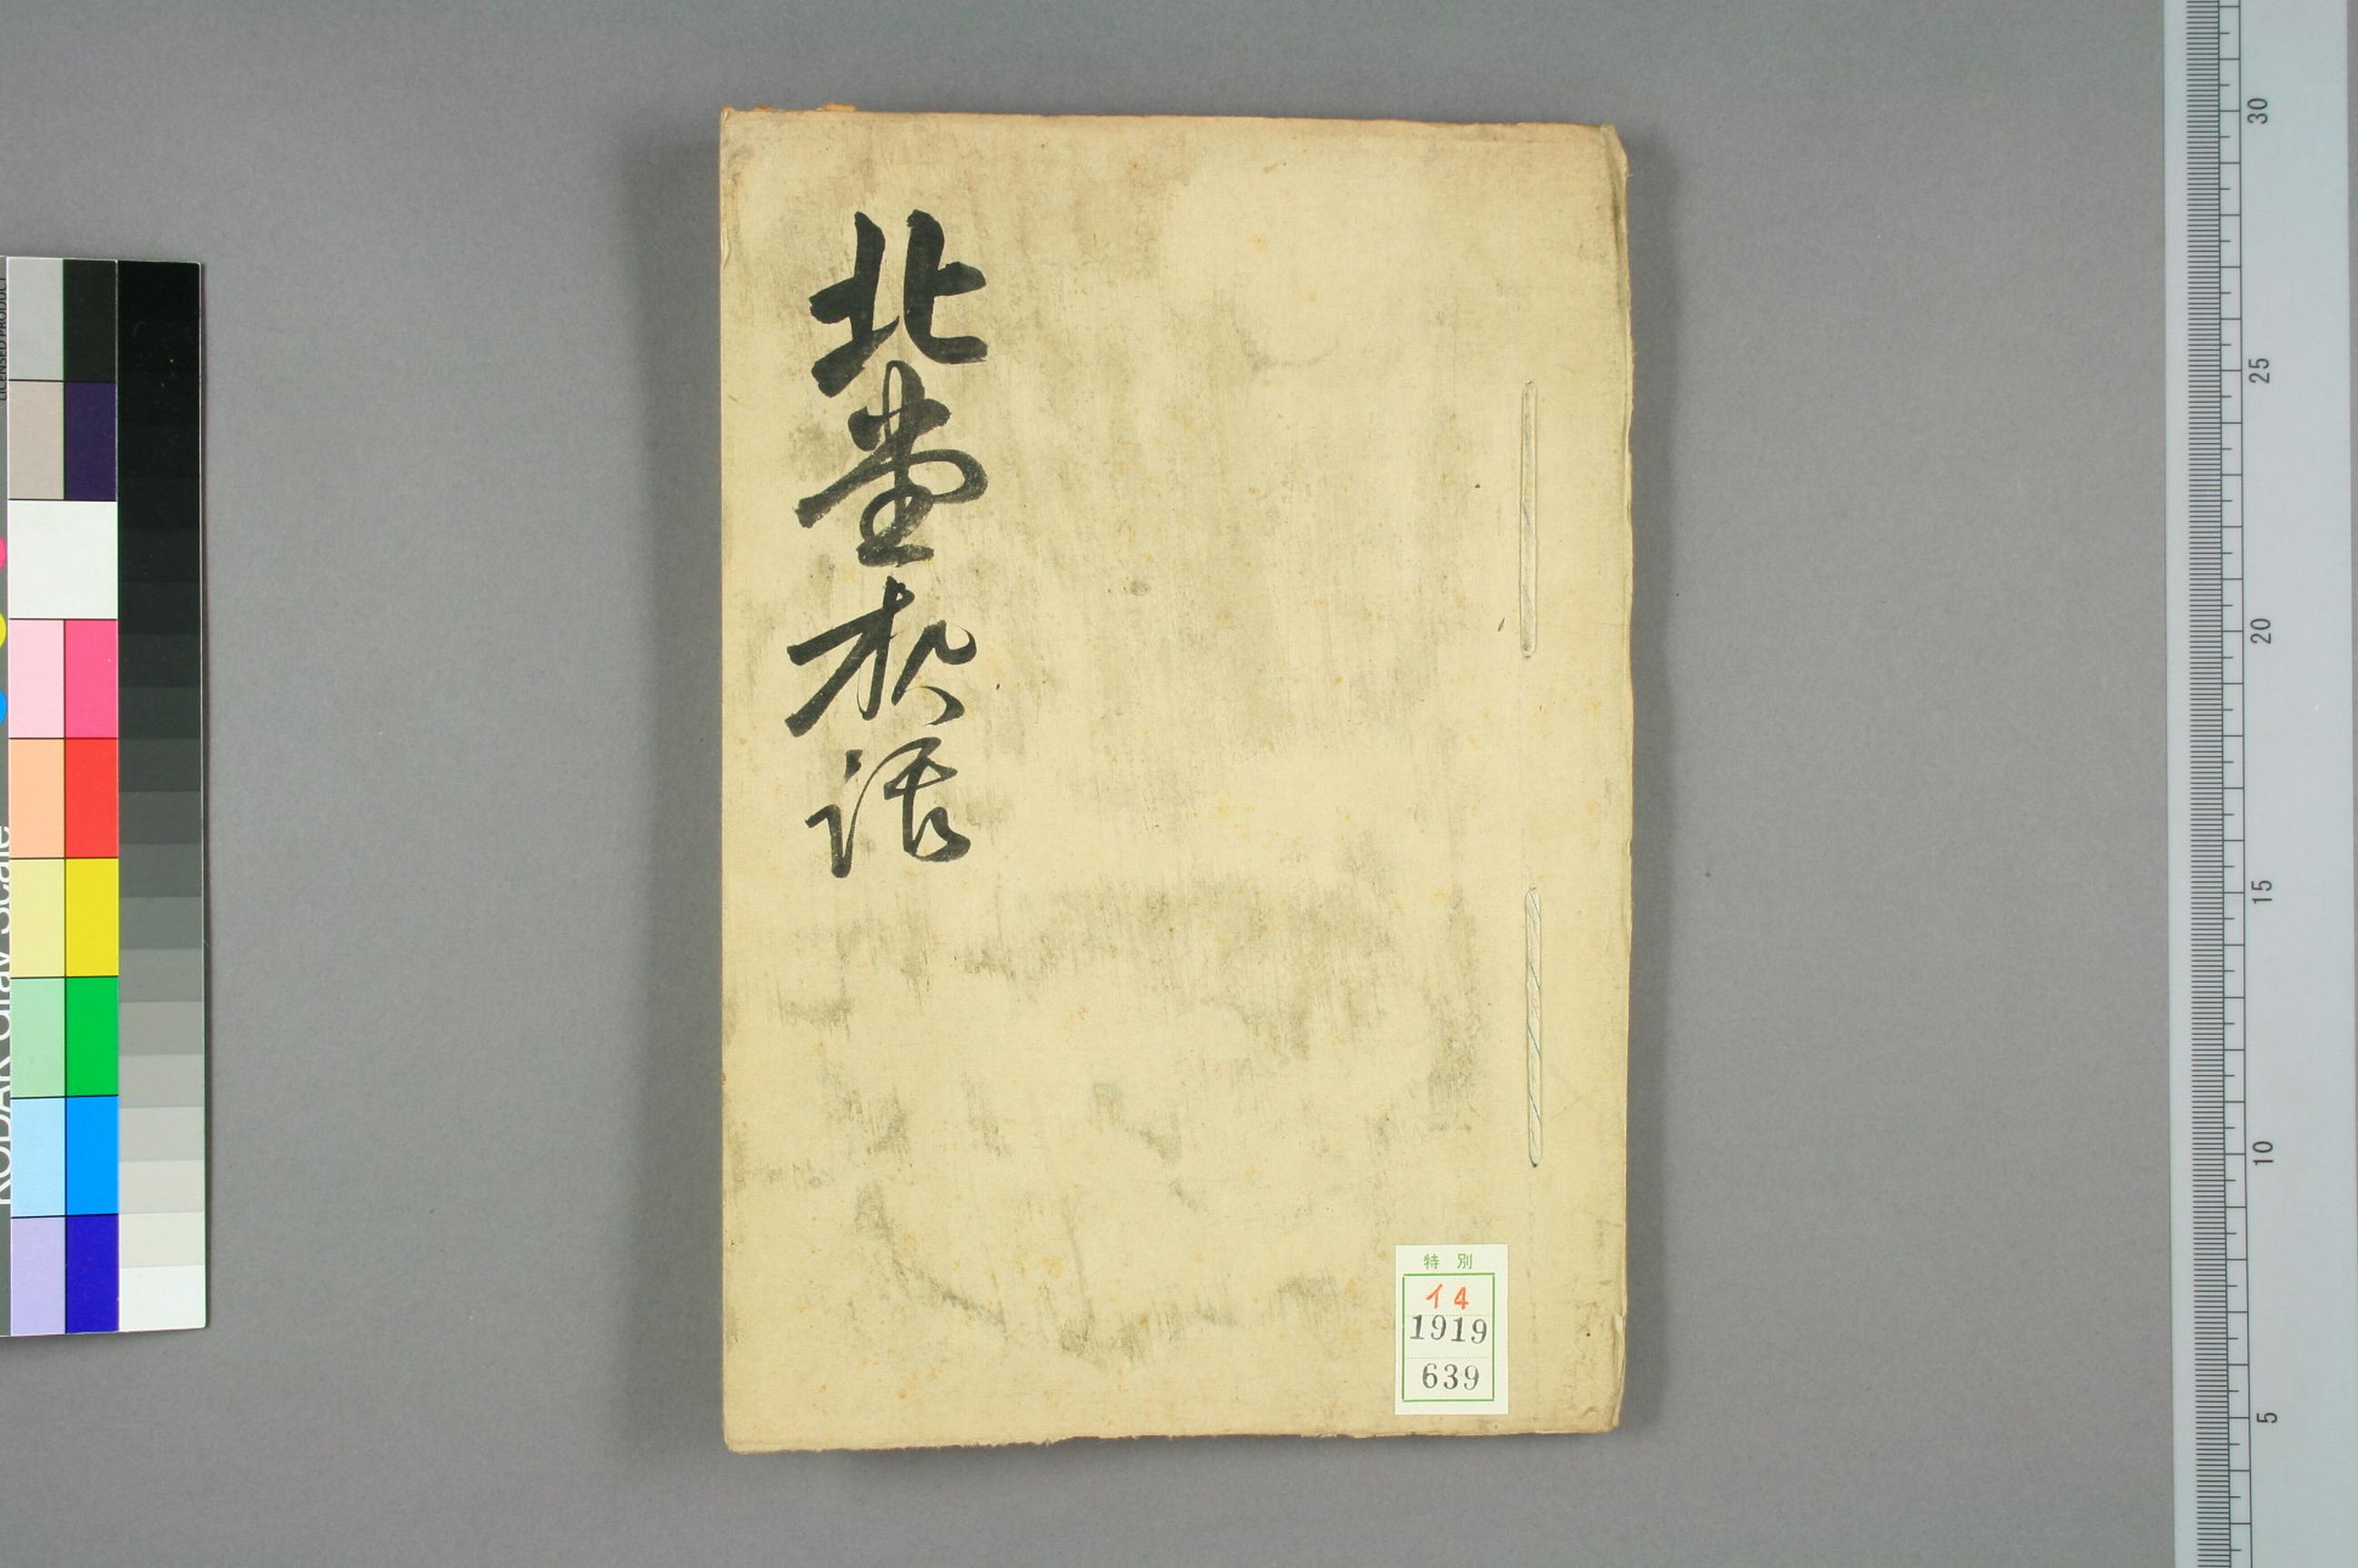 北堂
話
特別
イ4
1919
639
30
25
20
15
10
5
KODAK Gray Scale
LICENSED PRODUCT